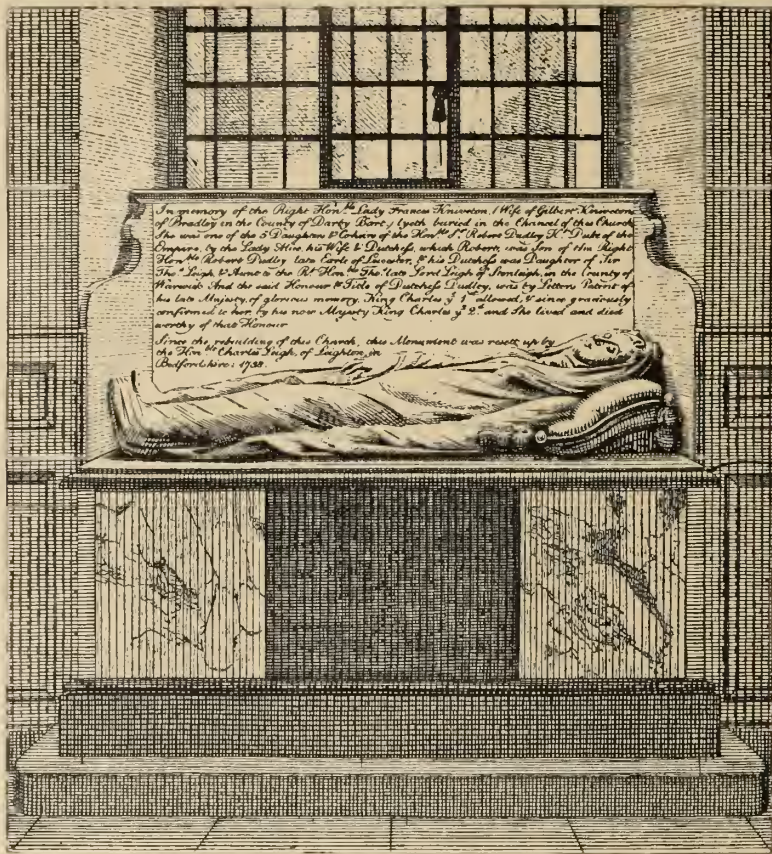 In memory of the Right Hon.ble Lady Frances Kniveton, (Wife of Gilbert Kniveton
of Bradley in the County of Darby Bart.) lyeth buried in the Chancel of this Church
She was one of the 5 Daughters & Coheirs of the Rt. Hon.ble Sr. Robert Dudley Kt. Duke of the
Empire, by the Lady Alice his Wife & Dutchess, which Robert, was Son of the Right
Hon.ble Robert Dudley late Earle of Leicester, & his Dutchess was Daughter of Sir
Tho.s Leigh, & Aunt to the Rt. Hon.ble Tho. late Lord Leigh of Stonleigh, in the County of
Warwick And the said Honour & Title of Dutchess Dudley, was by Letters Patent of
his late Majesty, of glorious memory, King Charles ye 1st allowed, & since graciously
confirmed to her, by his now Majesty King Charles ye 2d and She lived and died
worthy of that Honour
Since the rebuilding of this Church, this Monument was resett up by
the Hon.ble Charles Leigh, of Leighton, in
Bedfordshire: 1738.